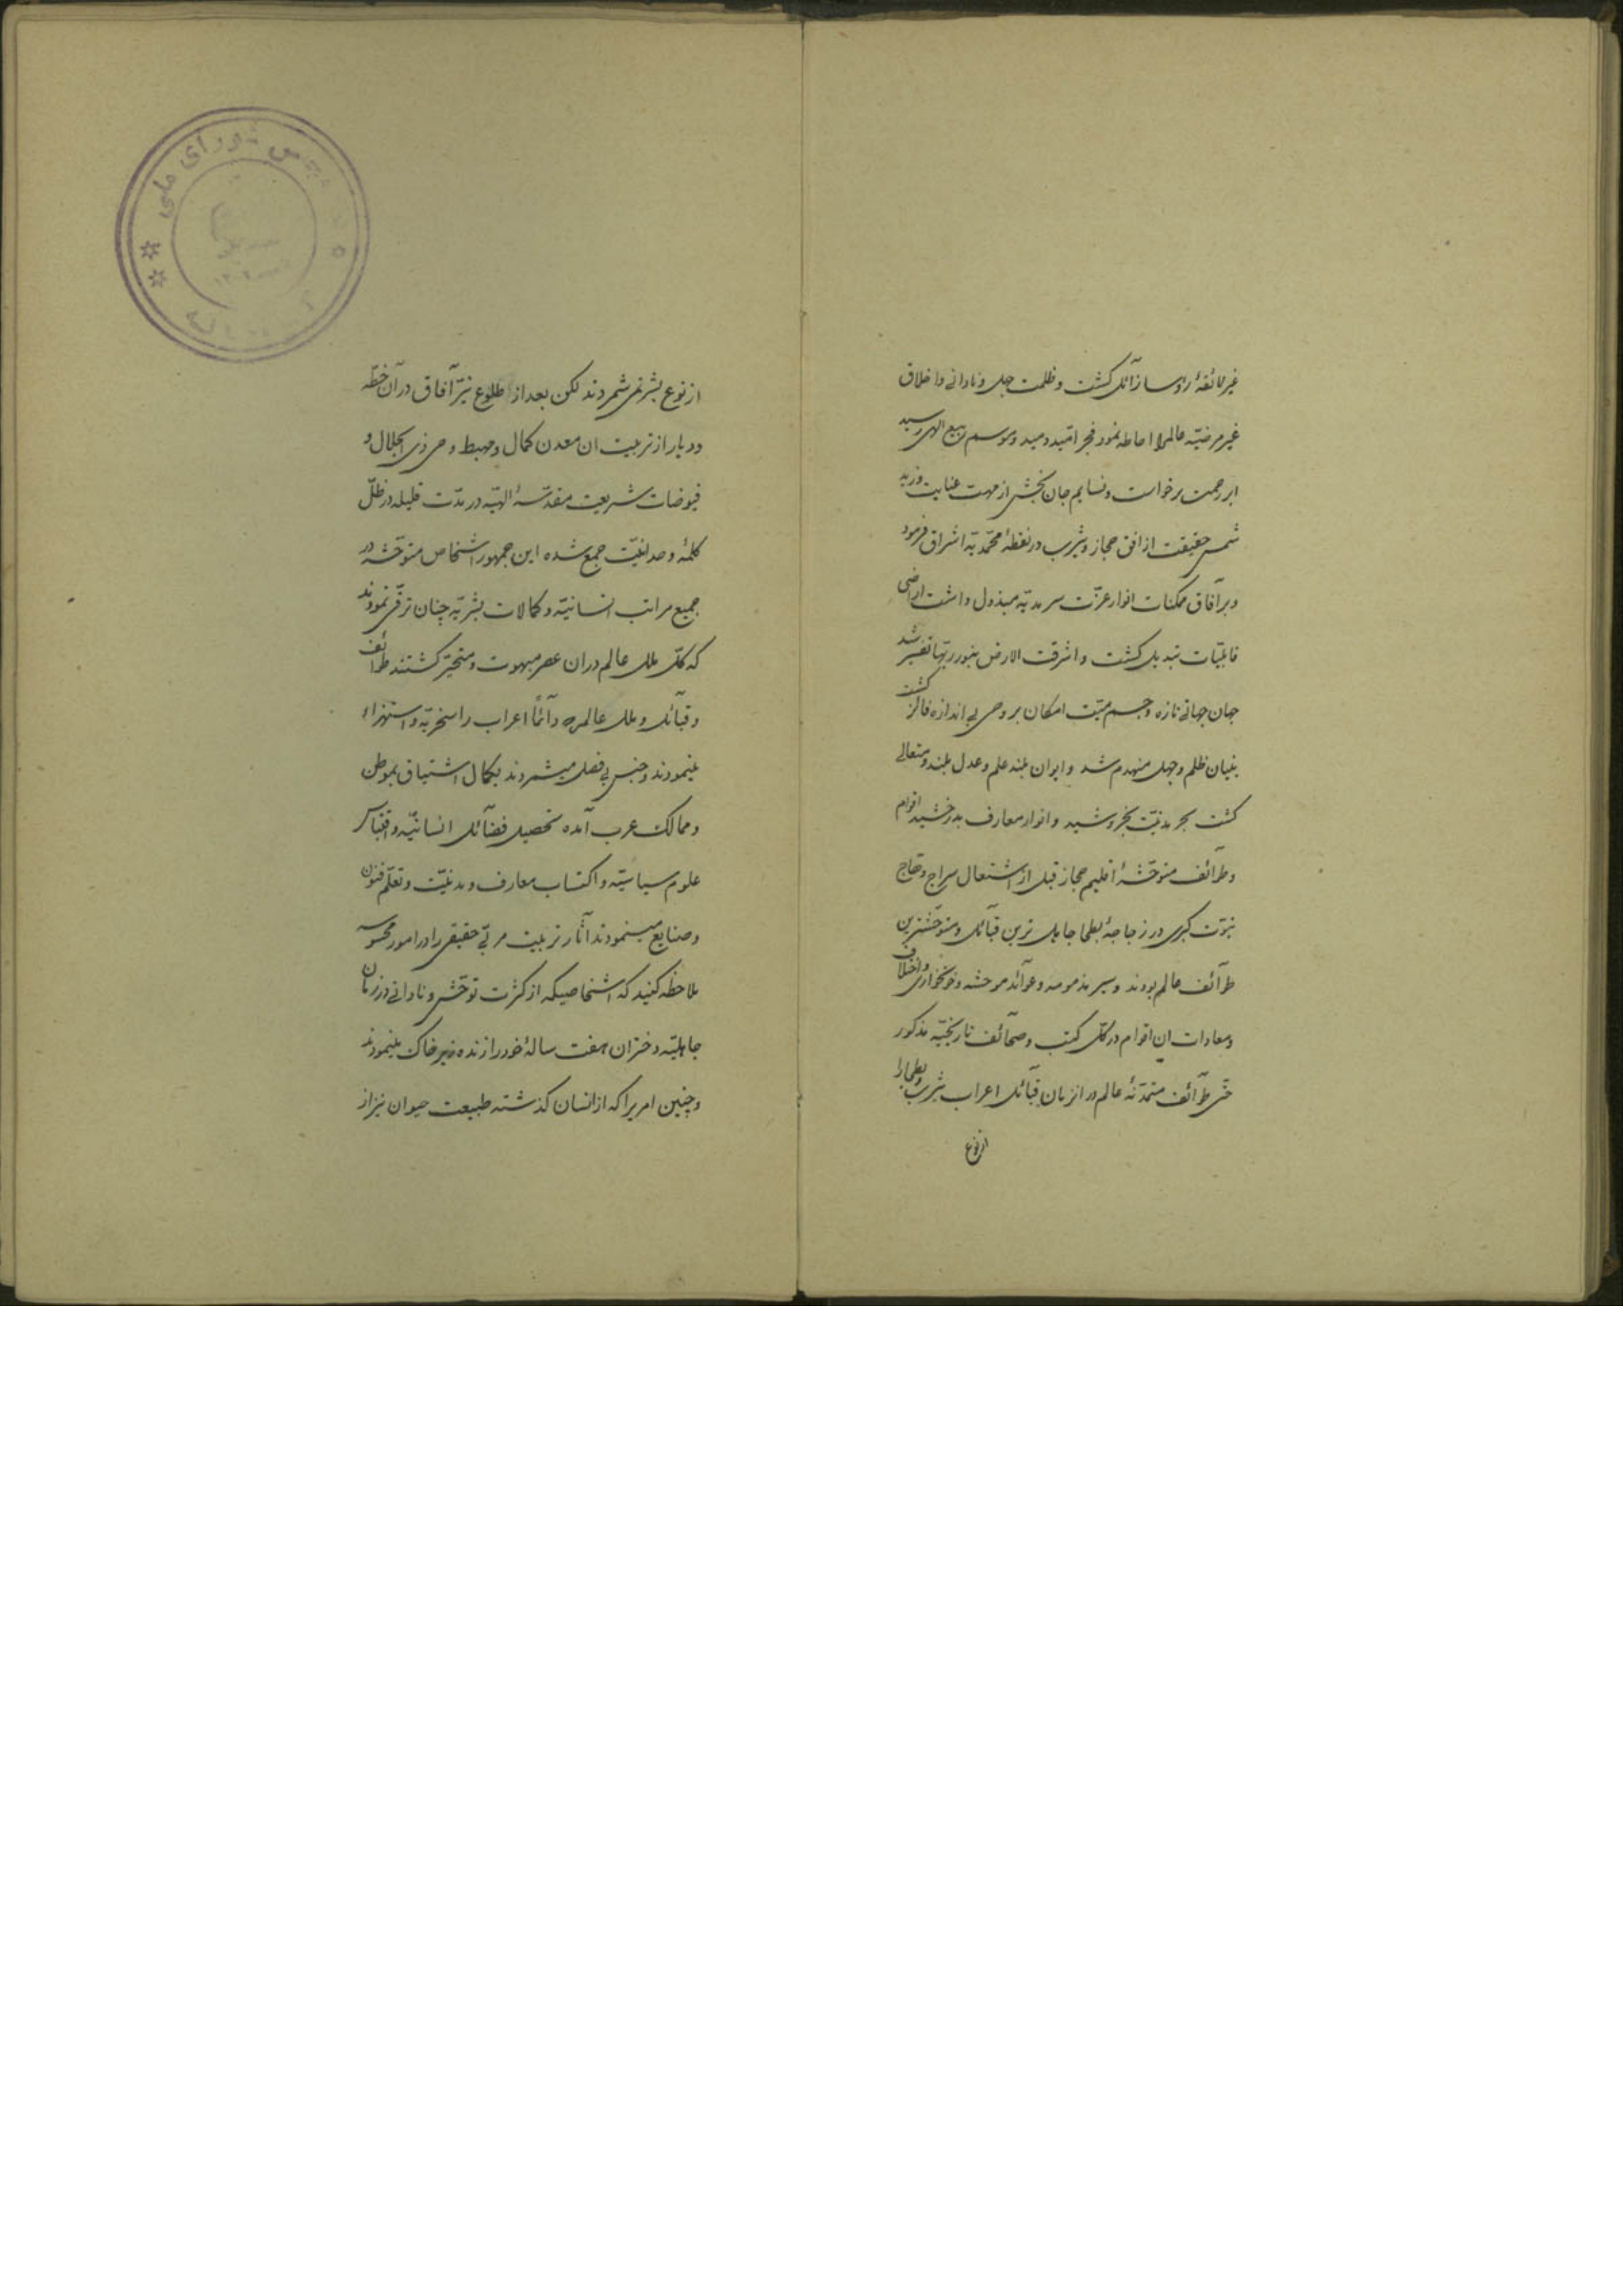 غیر لائقهٔ رؤسا زآئل کشت و ظلمت جهل و نادانی و اخلاق
غیر مرضیّه عالمرا احاطه نمود فجر امّید دمید و موسم ربیع الهی رسید
ابر رحمت برخواست و نسایم جان بخش از مهبّ عنایت وزید
شمس حقیقت از افق حجاز و یثرب در نقطهٔ محمّدیّه اشراق فرمود
و بر آفاق ممکنات انوار عزّت سرمدیّه مبذول داشت اراضی
قابلیّات تبدیل کشت و اشرقت الارض بنور ربّها تفسیر شد
جهان جهانی تازه و جسم میّت امکان بروحی بی اندازه فائز کشت
بنیان ظلم و جهل منهدم شد و ایوان بلند علم و عدل بلند و متعالی
کشت بحر مدنیّت بخروشید و انوار معارف بدرخشید اقوام
و طوآئف متوحّشهٔ اقلیم حجاز قبل از اشتعال سراج وهّاج
نبوّت کبری در زجاجهٔ بطحا جاهل ترین قبآئل و متوحّشترین
طوآئف عالم بودند و سیر مذمومه و عوآئد موحشه و خونخواری و اختلاف
و معادات ان اقوام در کلّ کتب و صحآئف تاریخیّه مذکور
حتّی طوآئف متمدّنهٔ عالم در انزمان قبآئل اعراب یثرب و بطحارا
از نوع
مجلس شورای ملی
از نوع بشر نمیشمردند لکن بعد از طلوع نیّر آفاق در آن خطّه
و دیار از تربیت ان معدن کمال و مهبط وحی ذی الجلال و
فیوضات شریعت مقدّسهٔ الهیّه در مدّت قلیله در ظلّ
کلمهٔ وحدانیّت جمع شده این جمهور اشخاص متوحّشه در
جمیع مراتب انسانیّه و کمالات بشریّه چنان ترقّی نمودند
که کلّ ملل عالم دران عصر مبهوت و متحیّر کشتند طوائف
و قبآئل و ملل عالم که دآئماً اعراب را سخریّه و استهزاء
مینمودند و جنس بی فضل میشمردند بکمال اشتیاق بموطن
و ممالک عرب آمده تحصیل فضآئل انسانیّه و اقتباس
علوم سیاسیّه و اکتساب معارف و مدنیّت و تعلّم فنون
و صنایع مینمودند آثار تربیت مربّی حقیقی را در امور محسوسه
ملاحظه کنید که اشخاصیکه از کثرت توحّش و نادانی در زمان
جاهلیّه دختران هفت سالهٔ خود را زنده زیر خاک مینمودند
و چنین امریرا که از انسان کذشته طبیعت حیوان نیز از